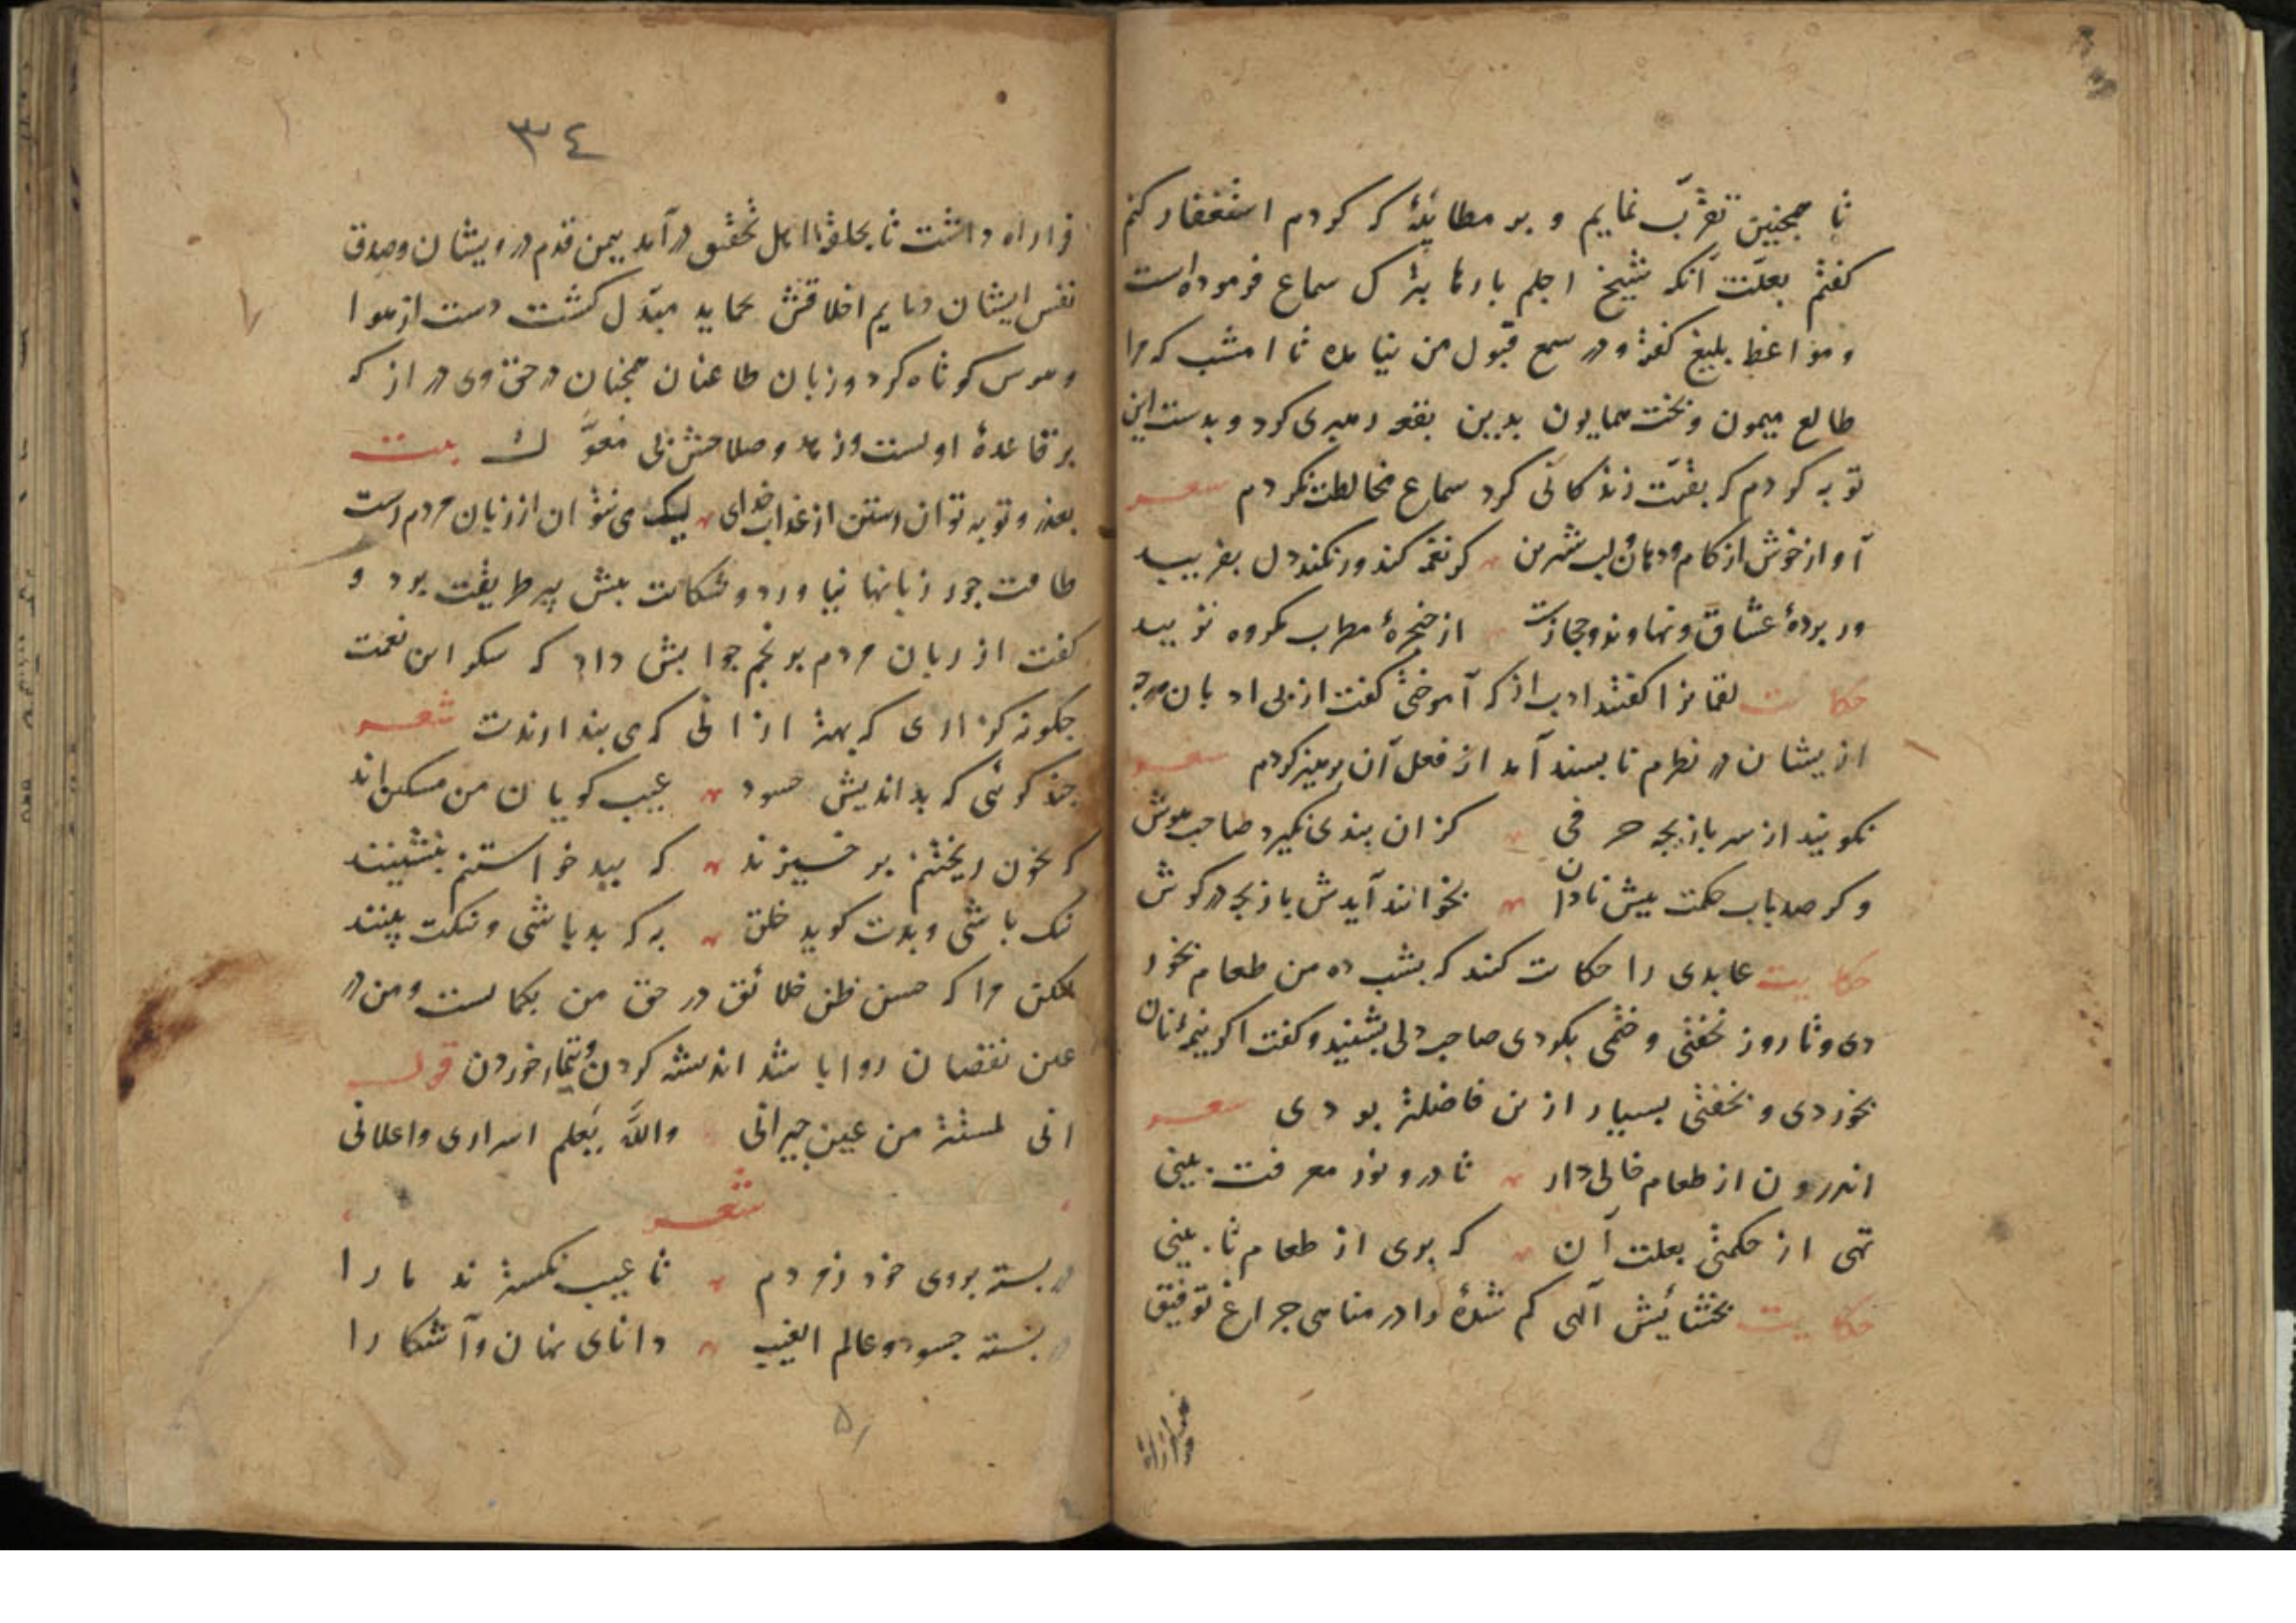 تا همچنین تقرّب نمایم و بر مطایبهٔ که کردم استغفار کنم
کفتم بعلّت آنکه شیخ اجلم بارها بترک سماع فرموده است
و مواعظ بلیغ کفته و در سمع قبول من نیامده تا امشب که مرا
طالع میمون و بخت همایون بدین بقعه رهبری کرد و بدست این
توبه کردم که بقیّت زندکانی کرد سماع و مخالطت نکردم شعر
آواز خوش از کام و دهان و لب شیرین کر نغمه کند ور نکند دل بفریبد
ور پردهٔ عشاق و نهاوند و حجازست از حنجرهٔ مطرب مکروه نزیبد
حکایت لقمانرا کفتند ادب از که آموختی کفت از بی ادبان هرچه
ازیشان در نظرم ناپسند آمد از فعل آن پرهیز کردم شعر
نکویند از سر بازیچه حرفی کزان پندی نکیرد صاحب هوش
و کر صد باب حکمت پیش نادان بخوانند آیدش بازیچه در کوش
حکایت عابدی را حکایت کنند که بشب ده من طعام بخور
دی و تا روز نخفتی و ختمی بکردی صاحب دلی بشنید و کفت اکر نیمهٔ نان
بخوردی و بخفتی بسیار ازین فاضلتر بودی شعر
اندرون از طعام خالی دار تا درو نور معرفت بینی
تهی از حکمتی بعلت آن که پری از طعام تا بینی
حکایت بخشایش آلهی کم شدهٔ را در مناهی چراغ توفیق
فرا راه
٣٤
فرا راه داشت تا بحلقهٔ اهل تحقیق درآمد بیمن قدم درویشان و صدق
نفس ایشان ذمایم اخلاقش بحماید مبدّل کشت دست از هوا
و هوس کوتاه کرد و زبان طاعنان همچنان در حق وی دراز که
بر قاعدهٔ اولست و زهد و صلاحش بی معوّل بیت
بعذر و توبه توان رستن از عذاب خدای لیک می نتوان از زبان مردم رست
طاقت جور زبانها نیاورد و شکایت پیش پیر طریقت برد و
کفت از زبان مردم برنجم جوابش داد که شکر این نعمت
چکونه کزاری که بهتر از انی که می پندارندت شعر
چند کوئی که بداندیش حسود عیب کویان من مسکین اند
که بخون ریختنم برخیزند که ببد خواستنم بنشینند
نیک باشی و بدت کوید خلق به که بد باشی و نیکت بینند
لیکن مرا که حسن ظن خلائق در حق من بکمالست و من در
عین نقصان روا باشد اندیشه کردن و تیمار خوردن قوله
انی لمستتر من عین جیرانی والله یعلم اسراری و اعلانی
شعر
در بسته بروی خود ز مردم تا عیب نکسترند ما را
در بسته چسود و عالم الغیب دانای نهان و آشکارا